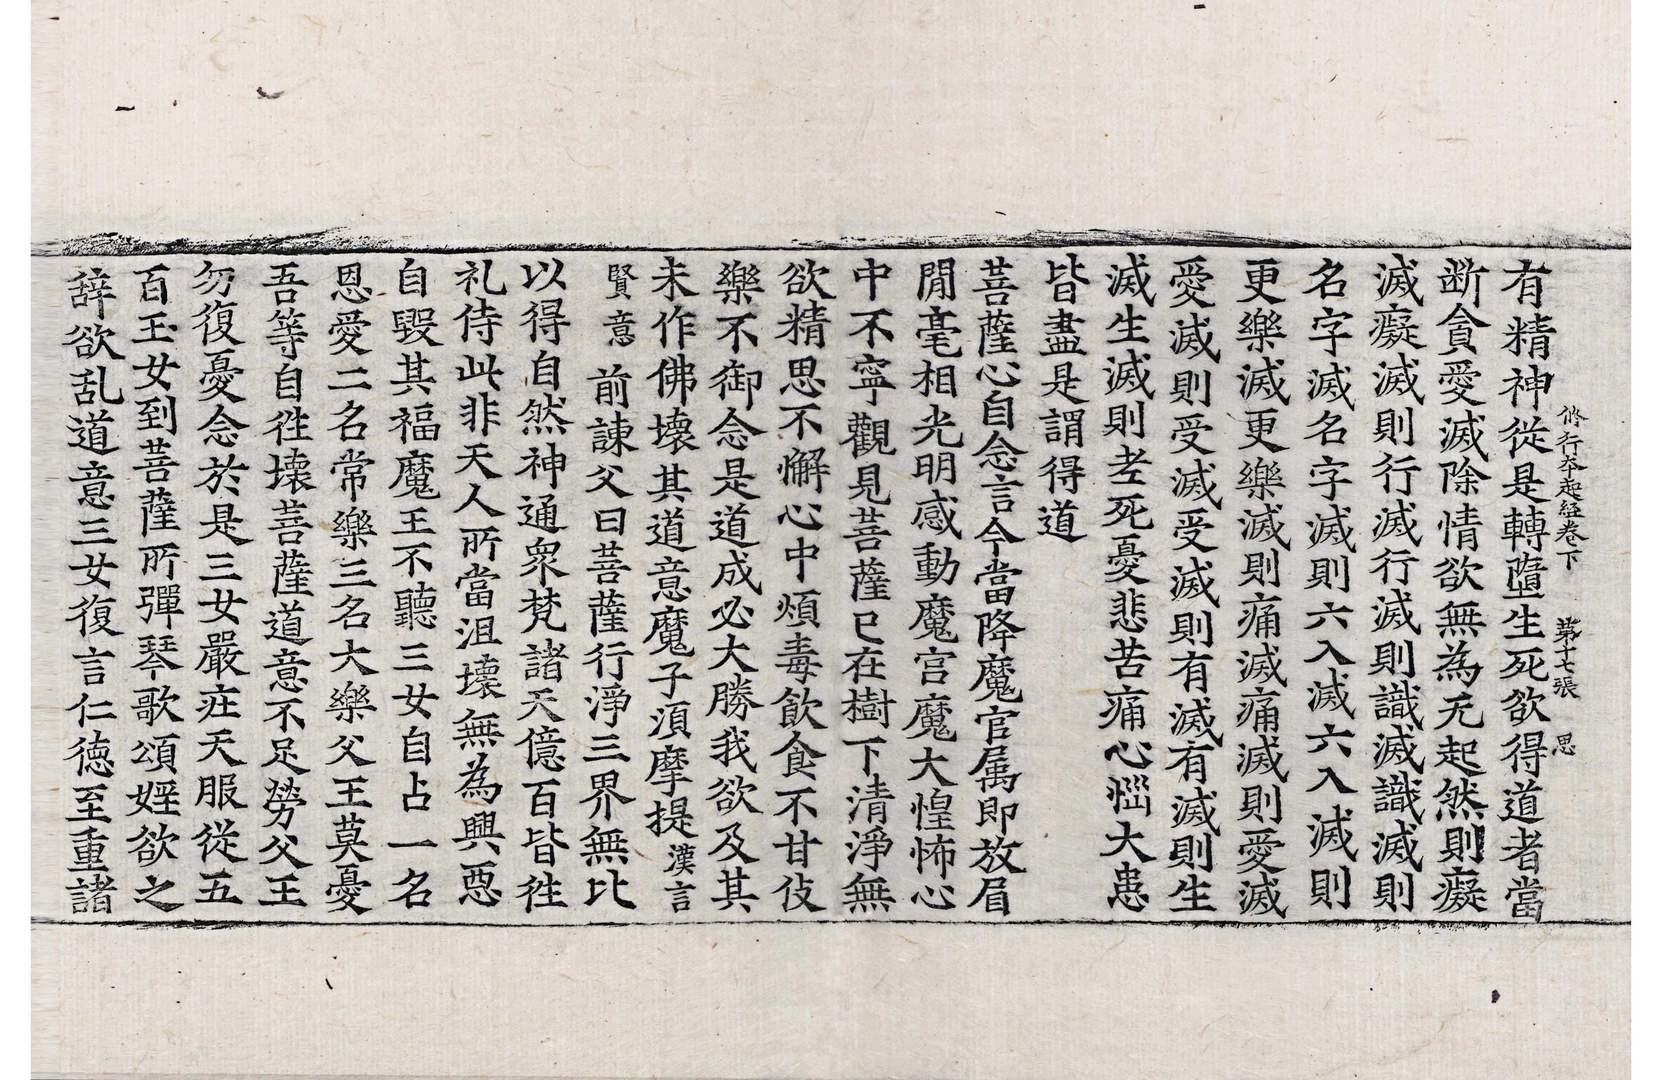 修行夲起経卷下　第十七張　思
有精神從是轉墮生死欲得道者當
断貪愛滅除情欲無為无起然則癡
滅癡滅則行滅行滅則識滅識滅則
名字滅名字滅則六入滅六入滅則
更樂滅更樂滅則痛滅痛滅則愛滅
愛滅則受滅受滅則有滅有滅則生
滅生滅則老死憂悲苦痛心惱大患
皆盡是謂得道
菩薩心自念言今當降魔官属即放眉
閒毫相光明感動魔宮魔大惶怖心
中不寧觀見菩薩已在樹下清淨無
欲精思不懈心中煩毒飲食不甘伎
樂不御念是道成必大勝我欲及其
未作佛壞其道意魔子湏摩提漢言
賢意前諫父曰菩薩行淨三界無比
以得自然神通衆梵諸天億百皆徃
礼侍此非天人所當沮壞無為興𢙣
自毀其福魔王不聽三女自占一名
恩愛二名常樂三名大樂父王莫憂
吾等自徃壞菩薩道意不足勞父王
勿復憂念於是三女嚴㽵天服從五
百玉女到菩薩所彈琴歌頌婬欲之
辝欲乱道意三女復言仁德至重諸